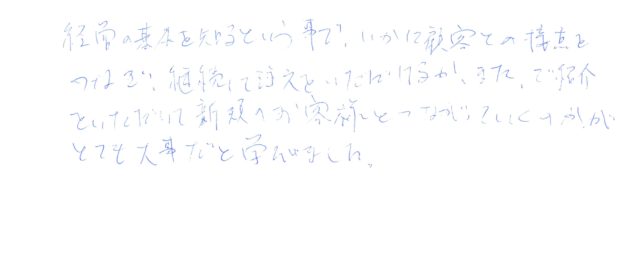 経営の基本を知るという事で、いかに顧客との接点を
つなぎ、継続して注文をいただけるか、また、ご紹介
をいただいて新規のお客様とつながっていくのかが
とても大事だと学びました。